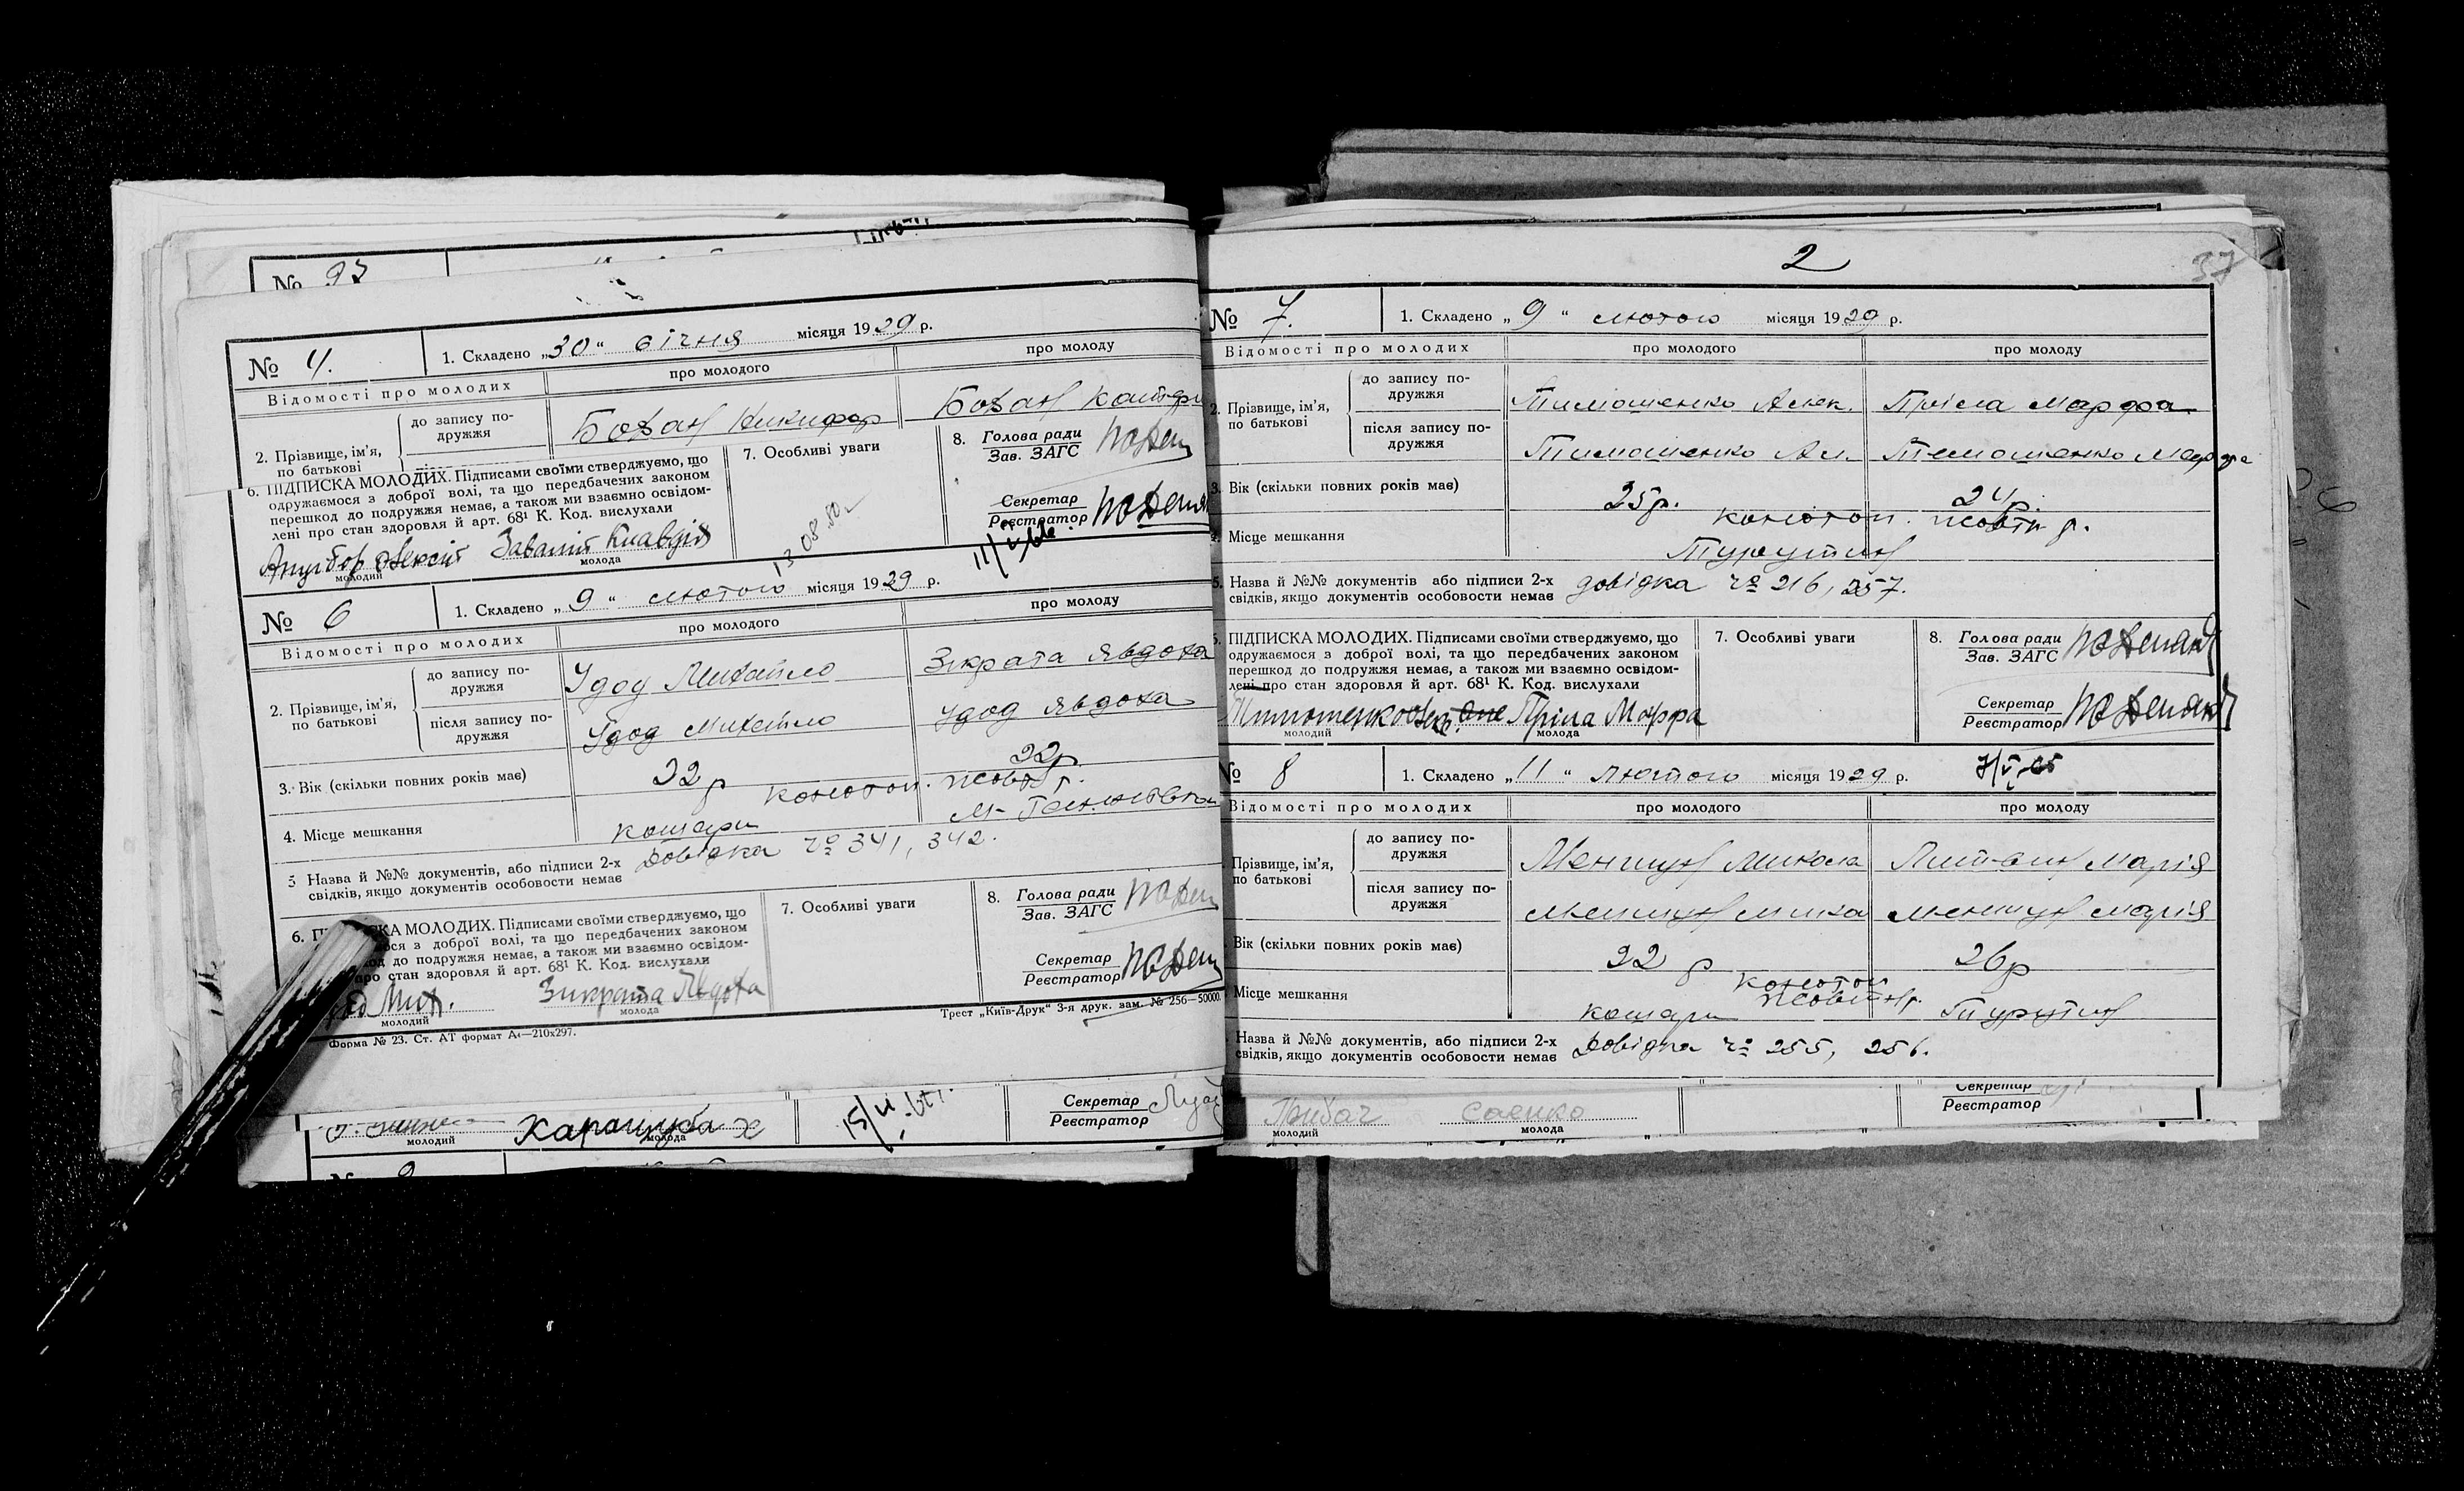 № 97
№ 4.
1. Складено „30“ січня місяця 1929 р.
Відомості про молодих
про молодого
про молоду
2. Прізвище, ім’я, по батькові
до запису подружжя
Божан Никифор
Божан
6. ПІДПИСКА МОЛОДИХ. Підписами своїми стверджуємо, що
одружаємося з доброї волі, та що передбачених законом
перешкод до подружжя немає, а також ми взаємно освідом-
лені про стан здоровля й арт. 68¹ К. Код. вислухали
7. Особливі уваги
13.08.80
8. Голова ради
Зав. ЗАГС
Секретар
Реєстратор
Завалій Клавдія
молодий
молода
№ 6
1. Складено „9“ лютого місяця 1929 р.
Відомості про молодих
про молодого
про молоду
2. Прізвище, ім’я, по батькові
до запису по-
дружжя
Удод Михайло
Зікрата Явдоха
після запису по-
дружжя
Удод Михайло
Удод Явдоха
3. Вік (скільки повних років має)
22 р
22р.
4. Місце мешкання
Конотоп. Жовт. р.
Кошари
5 Назва й №№ документів, або підписи 2-х
свідків, якщо документів особовости немає
Довідка № 341, 342.
МОЛОДИХ. Підписами своїми стверджуємо, що
з доброї волі, та що передбачених законом
до подружжя немає, а також ми взаємно освідом-
стан здоровля й арт. 68¹ К. Код. вислухали
7. Особливі уваги
8. Голова ради
Зав. ЗАГС
Секретар
Реєстратор
Мих.
Зикрата Явдоха
молодий
молода
Форма № 23. Ст. АТ формат А4—210х297.
Трест „Київ-Друк“ 3-я друк. зам. № 256—50000.
Каращуба Х
молодий
молода
Секретар
Реєстратор
2
37
№ 7.
1. Складено „9“ лютого місяця 1929 р.
Відомості про молодих
про молодого
про молоду
2. Прізвище, ім’я,
по батькові
до запису по-
дружжя
Тимошенко Алек.
Пріла Марфа
після запису по-
дружжя
Тимошенко Ал.
Тимошенко Марфа
3. Вік (скільки повних років має)
25р.
24р.
Місце мешкання
Конотоп. Жовтн р.
Турутин
5. Назва й №№ документів або підписи 2-х
свідків, якщо документів особовости немає
довідка № 216, 257.
ПІДПИСКА МОЛОДИХ. Підписами своїми стверджуємо, що
одружаємося з доброї волі, та що передбачених законом
перешкод до подружжя немає, а також ми взаємно освідом-
лені про стан здоровля й арт. 68¹ К. Код. вислухали
7. Особливі уваги
8. Голова ради
Зав. ЗАГС
Секретар
Реєстратор
Тимошенко
Пріла Марфа
молодий
молода
№ 8
1. Складено „11“ лютого місяця 1929 р.
Відомості про молодих
про молодого
про молоду
Прізвище, ім’я,
по батькові
до запису по-
дружжя
Меншун Микола
Литвин Марія
після запису по-
дружжя
Меншун Мика
Меншун Марія
Вік (скільки повних років має)
22 р
26р
Місце мешкання
Конотоп
Жовтн р.
Кошари
Турутин
Назва й №№ документів, або підписи 2-х
свідків, якщо документів особовости немає
Довідка № 255, 256.
Грибач
Саенко
молодий
молода
Секретар
Реєстратор